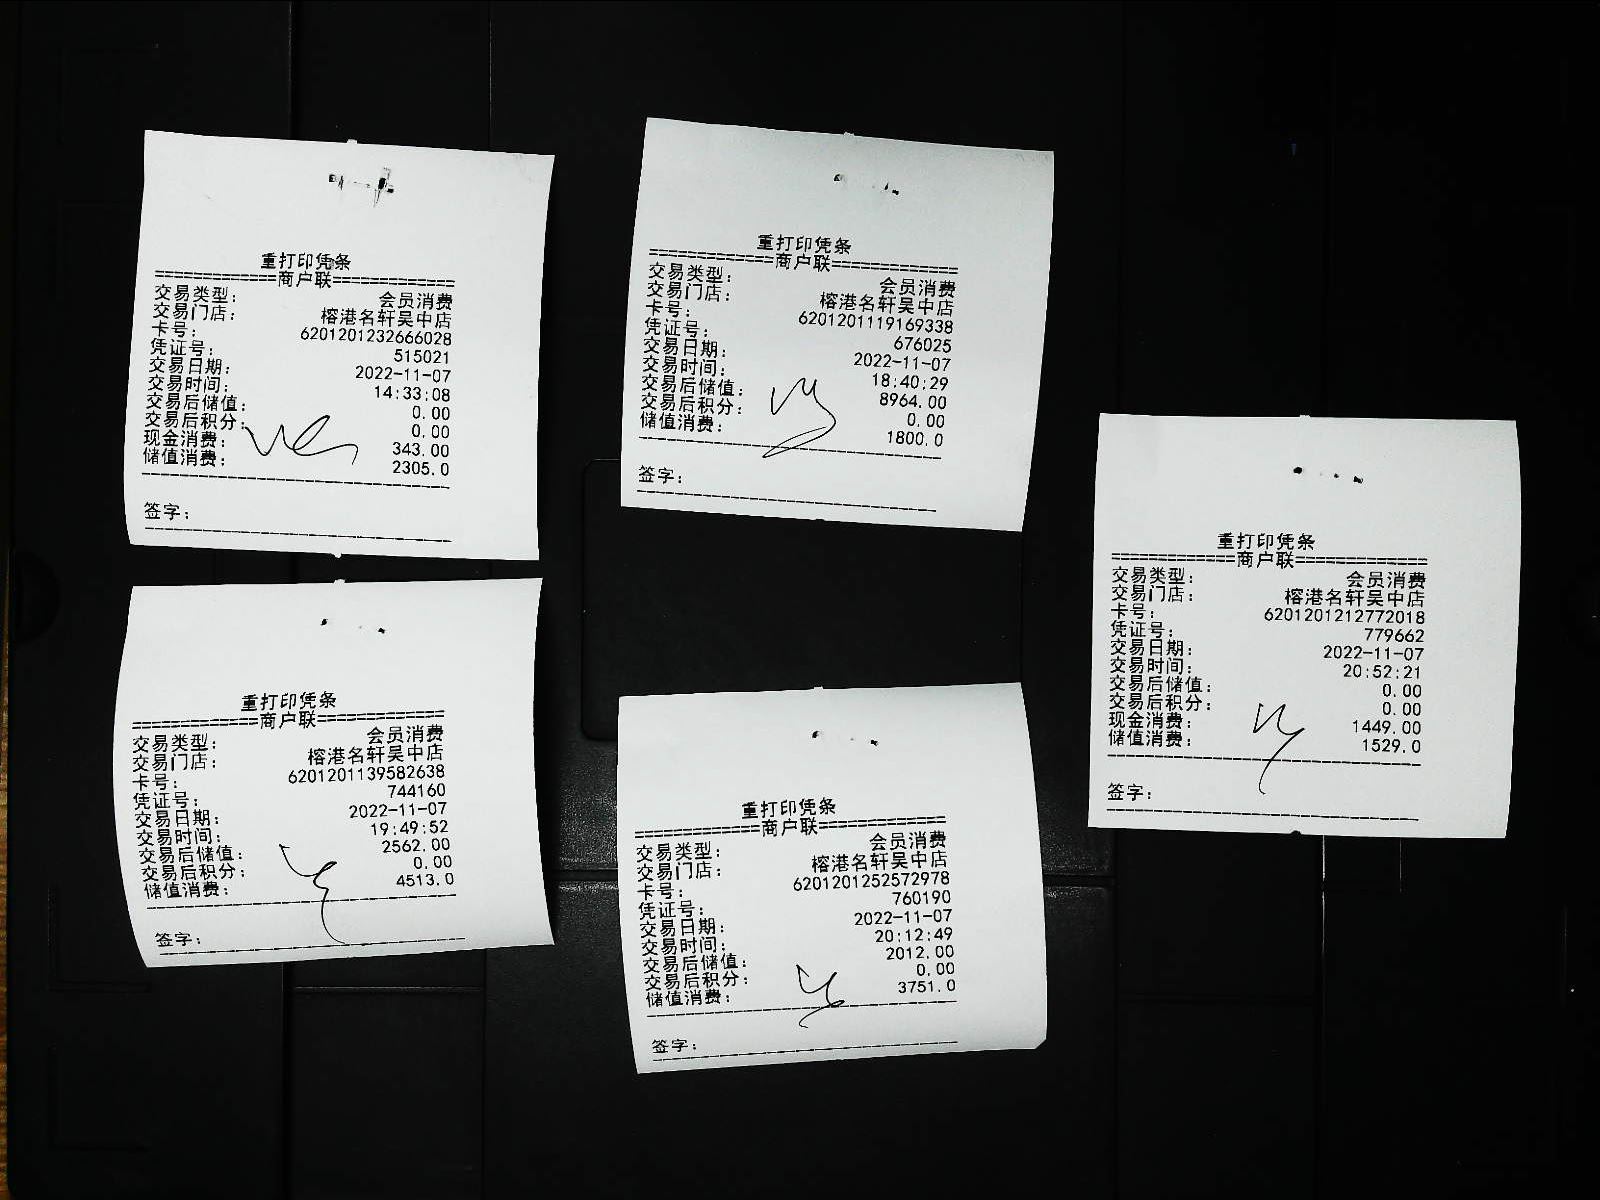 重打印凭条
=============商户联=============
交易类型: 会员消费
交易门店: 榕港名轩吴中店
卡号: 6201201232666028
凭证号: 515021
交易日期: 2022-11-07
交易时间: 14:33:08
交易后储值: 0.00
交易后积分: 0.00
现金消费: 343.00
储值消费: 2305.0
签字:
重打印凭条
=============商户联=============
交易类型: 会员消费
交易门店: 榕港名轩吴中店
卡号: 6201201119169338
凭证号: 676025
交易日期: 2022-11-07
交易时间: 18:40:29
交易后储值: 8964.00
交易后积分: 0.00
储值消费: 1800.0
签字:
重打印凭条
=============商户联=============
交易类型: 会员消费
交易门店: 榕港名轩吴中店
卡号: 6201201212772018
凭证号: 779662
交易日期: 2022-11-07
交易时间: 20:52:21
交易后储值: 0.00
交易后积分: 0.00
现金消费: 1449.00
储值消费: 1529.0
签字:
重打印凭条
=============商户联=============
交易类型: 会员消费
交易门店: 榕港名轩吴中店
卡号: 6201201139582638
凭证号: 744160
交易日期: 2022-11-07
交易时间: 19:49:52
交易后储值: 2562.00
交易后积分: 0.00
储值消费: 4513.0
签字:
重打印凭条
=============商户联=============
交易类型: 会员消费
交易门店: 榕港名轩吴中店
卡号: 6201201252572978
凭证号: 760190
交易日期: 2022-11-07
交易时间: 20:12:49
交易后储值: 2012.00
交易后积分: 0.00
储值消费: 3751.0
签字: